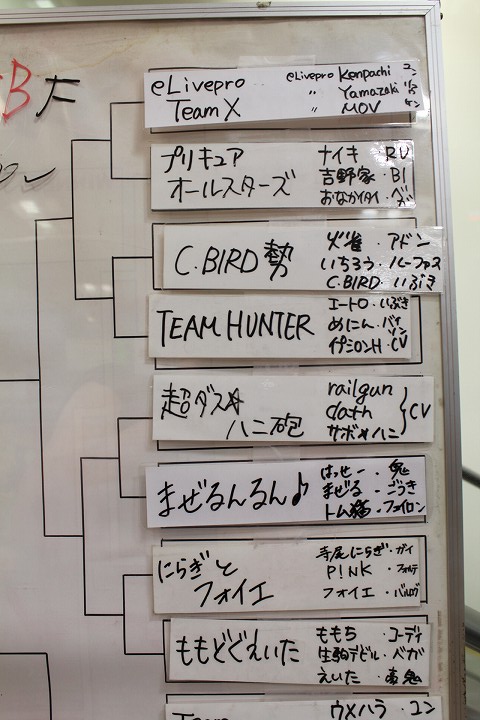 Bブ
eLivepro
Team X
eLivepro Kenpachi ユン
〃 Yamazaki
〃 MOV ケン
プリキュア
オールスターズ
ナイキ・RU
吉野家・BL
おなかイタイ・ベガ
C.BIRD勢
火雀・アドン
いちろう・ルーファス
C.BIRD・いぶき
TEAM HUNTER
エートロ・いぶき
めにん・バイソン
イプシロンH・CV
超ダス☆
ハニ砲
railgun
dath
サボ★ハニ
CV
まぜるんるん♪
はっせー・鬼
まぜる・ごうき
トム猫・フェイロン
にらぎと
フォイエ
寺尾にらぎ・ガイ
P!NK・フォルテ
フォイエ・バルログ
ももどぐえいた
ももち コーディ
生駒デビル・ベガ
えいた・毒鬼
Team
ウメハラ・ユン